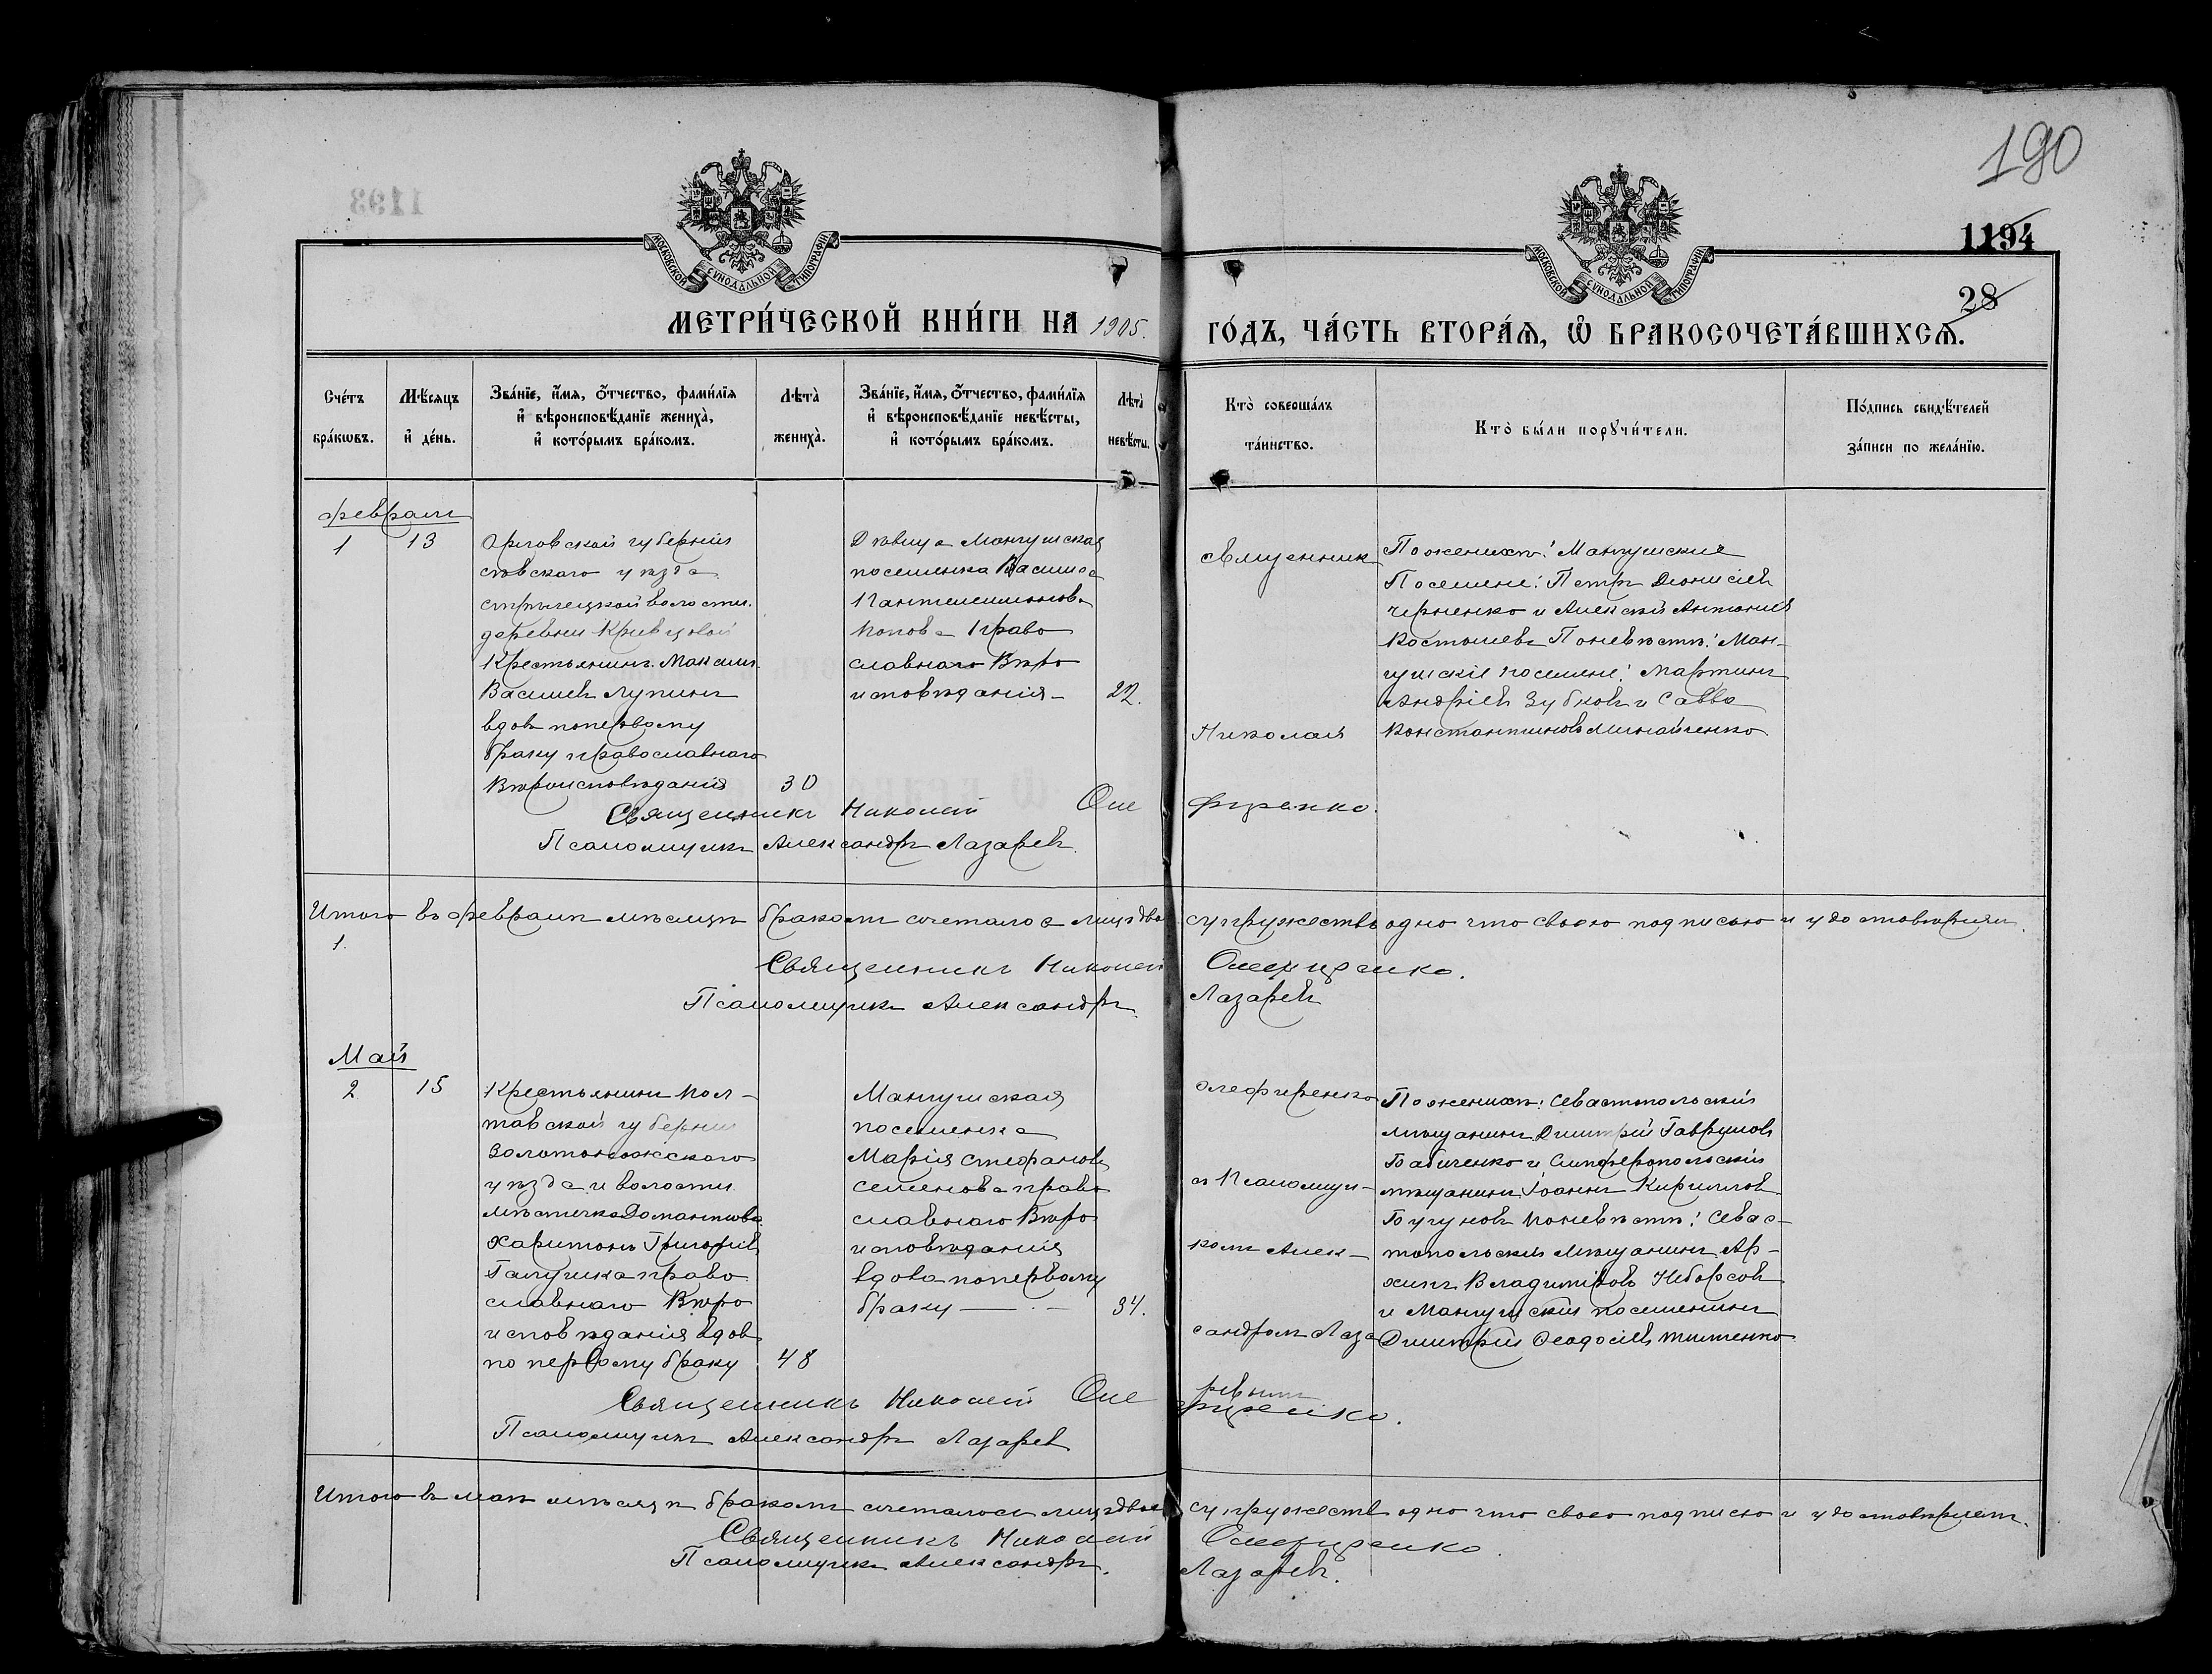 190
1194
28
МОСКОВСКОЙ СѴНОДАЛЬНОЙ ТИПОГРАФІИ
МОСКОВСКОЙ СѴНОДАЛЬНОЙ ТИПОГРАФІИ
МЕТРИ́ЧЕСКОЙ КНИ́ГИ НА 1905. ГО́ДЪ, ЧА́СТЬ ВТОРА́Ѧ, Ѽ БРАКОСОЧЕТА́ВШИХСѦ.
Сче́тъ бра́кѡвъ.
Мѣ́сяцъ и҆ де́нь.
Зва́нїе, и҆́мя, ѻ҆́тчество, фами́лїя и҆ вѣроисповѣ́данїе жениха̀, и҆ кото́рымъ бра́комъ.
Лѣта̀ жениха̀.
Зва́нїе, и҆́мя, ѻ҆́тчество, фами́лїя и҆ вѣроисповѣ́данїе невѣ́сты, и҆ кото́рымъ бра́комъ.
Лѣта̀ невѣ́сты.
Кто̀ соверша́лъ та́инство.
Кто̀ бы́ли порꙋчи́тели.
По́дпись свидѣ́телей за́писи по жела́нїю.
Февраль
1
13
Орловской губерніи
сѣвскаго уѣзда
деревни Кривцовой
Крестьянинъ Максимъ
Васильевъ Лупинъ
вдовъ по первому
браку православнаго
Вѣроисповѣданія
30
Дѣвица Мангушская
поселянка Василиса
Пантелеимонова
Попова Право
славнаго Вѣро
исповѣданія
22.
Священникъ
Николай
Пожених&#1123;: Мангушские
Поселяне: Петръ Діонисіевъ
Черненко и Алексѣй Антоніевъ
Костышевъ Поневѣстѣ: Ман-
гушскіе поселяне: Мартинъ
Андріевъ Зубковъ и Савва
Константиновъ Минайченко
Священникъ Николай Олефиренко.
Псаломщикъ Александръ Лазаревъ.
Итого въ Февралѣ мѣсяцѣ бракомъ сочеталося лицъ двое супружество одно что своею подписью и удостовѣряемъ.
1.
Священникъ Николай Олефиренко.
Псаломщикъ Александръ Лазаревъ
Май
2
15
Крестьянинъ Пол-
тавской губерніи
Золотоношскаго
уѣзда и волости
Харитонъ Григоріевъ
Галушка право
славнаго Вѣро
исповѣданія вдовъ
по первому браку
48
Мангушская
поселянка
Марія Стефанова
Семенова право
славнаго Вѣро
исповѣданія
вдова по первому
браку
34.
Олефиренко
и Псаломщи-
комъ Алек-
сандромъ Лаза
ревымъ
Поженихѣ: Севастопольскій
мѣщанинъ Димитрій Гавриловъ
Бабиченко и Симферопольскій
мѣщанинъ Іоаннъ Кирилловъ
Бугуновъ Поневѣстѣ: Севас-
топольскій мѣщанинъ Ар-
хипъ Владиміровъ Неборсовъ
и Мангушскій поселянинъ
Димитрій Ѳеодосіевъ Тимченко
Священникъ Николай Олефиренко.
Псаломщикъ Александръ Лазаревъ
Итого въ маѣ мѣсяцѣ бракомъ сочеталося лицъ двое супружество одно что своею подписью и удостовѣряемъ.
Священникъ Николай Олефиренко
Псаломщикъ Александръ Лазаревъ.